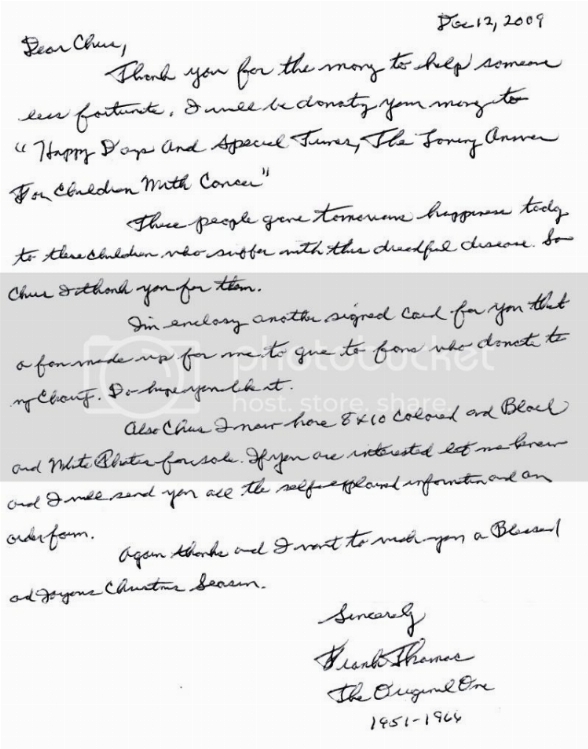 Dec 12, 2009
Dear Chris,
Thank you for the money to help someone
less fortunate. I will be donating your money to
"Happy Days And Special Times, The Loving Answer
For Children With Cancer"
These people give tomorrows happiness today
to these children who suffer with this dreadful disease. So
Chris I thank you for them.
I'm enclosing another signed card for you that
a fan made up for me to give to fans who donate to
my Charity. Do hope you like it.
photobucket
host. store. share.
Also Chris I now have 8x10 Colored and Black
and White Photos for sale. If you are interested let me know
and I will send you all the self-explained information and an
order form.
Again thanks and I want to wish you a Blessed
and Joyous Christmas Season.
Sincerely
Frank Thomas
The Original One
1951-1966